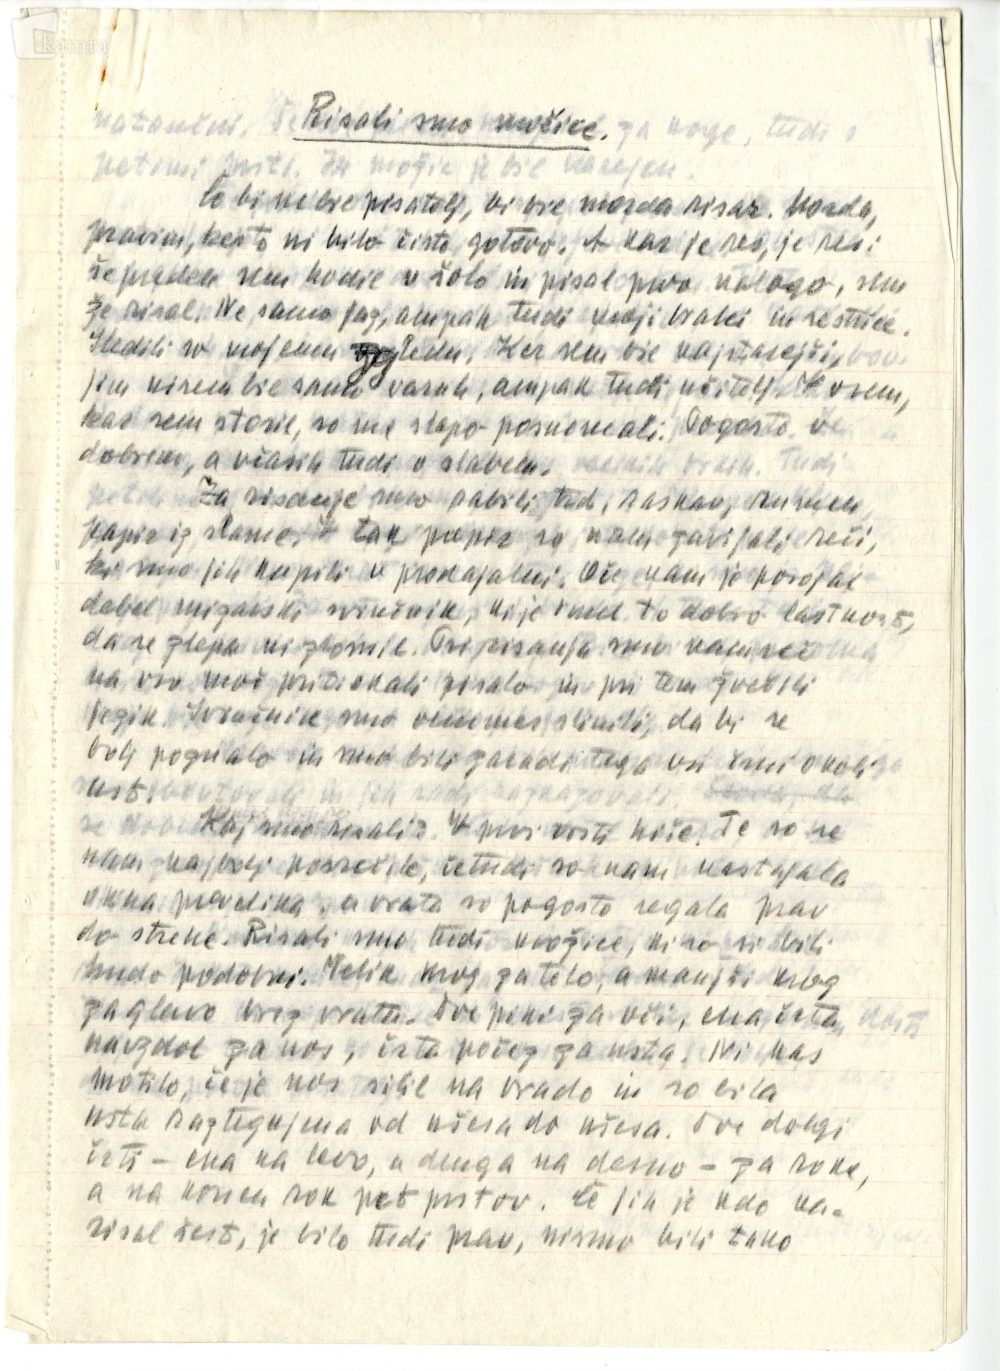 Risali smo možice.
Če bi ne bil pisatelj, bi bil morda risar. Morda,
pravim, ker to ni bilo čisto gotovo. A kar je res, je res:
še preden sem hodil v šolo in pisal prvo nalogo, sem
že risal. Ne samo jaz, ampak tudi moji bratci in sestrice.
Sledili so mojemu zgledu. Ker sem bil najstarejši,
jim nisem bil samo varuh, ampak tudi učitelj. V vsem,
kar sem storil, so me slepo posnemali. Pogosto v
dobrem, a včasih tudi v slabem.
Za risanje smo rabili trd, raskav, rumen
papir iz slame. V tak papir so nam zavijali reči,
ki smo jih kupili v prodajalni. Oče nam je posojal
debel mizarski svinčnik, ki je imel to dobro lastnost,
da se zlepa ni zlomil. Pri risanju smo namreč
na vso moč pritiskali pisalo in pri tem žvečili
jezik. Svinčnik smo venomer slinili, da bi se
bolj poznalo in smo bili zaradi tega vsi črni okoli
ust.
Kaj smo risali? V prvi vrsti hiše. Te so se
nam najbolj posrečile, četudi so nam nastajala
okna prevelika, a vrata so pogosto segala prav
do strehe. Risali smo tudi možice, ki so si bili
hudo podobni. Velik krog za telo, a manjši krog
za glavo brez vratu. Dve piki za oči, ena črta
navzdol za nos, črta počez za usta. Ni nas
motilo, če je nos silil na brado in so bila
usta raztegnjena od ušesa do ušesa. Dve dolgi
črti - ena na levo, a druga na desno - za roke,
a na koncu rok pet prstov. Če jih je kdo na-
risal šest, je bilo tudi prav, nismo bili tako